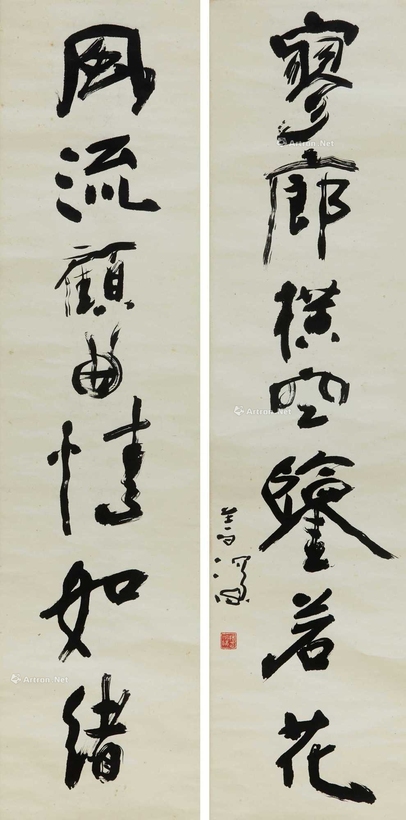 寥廊橫空鑒若花
風流顧曲情如緒
Artron.Net
Artron.Net
Artron.Net